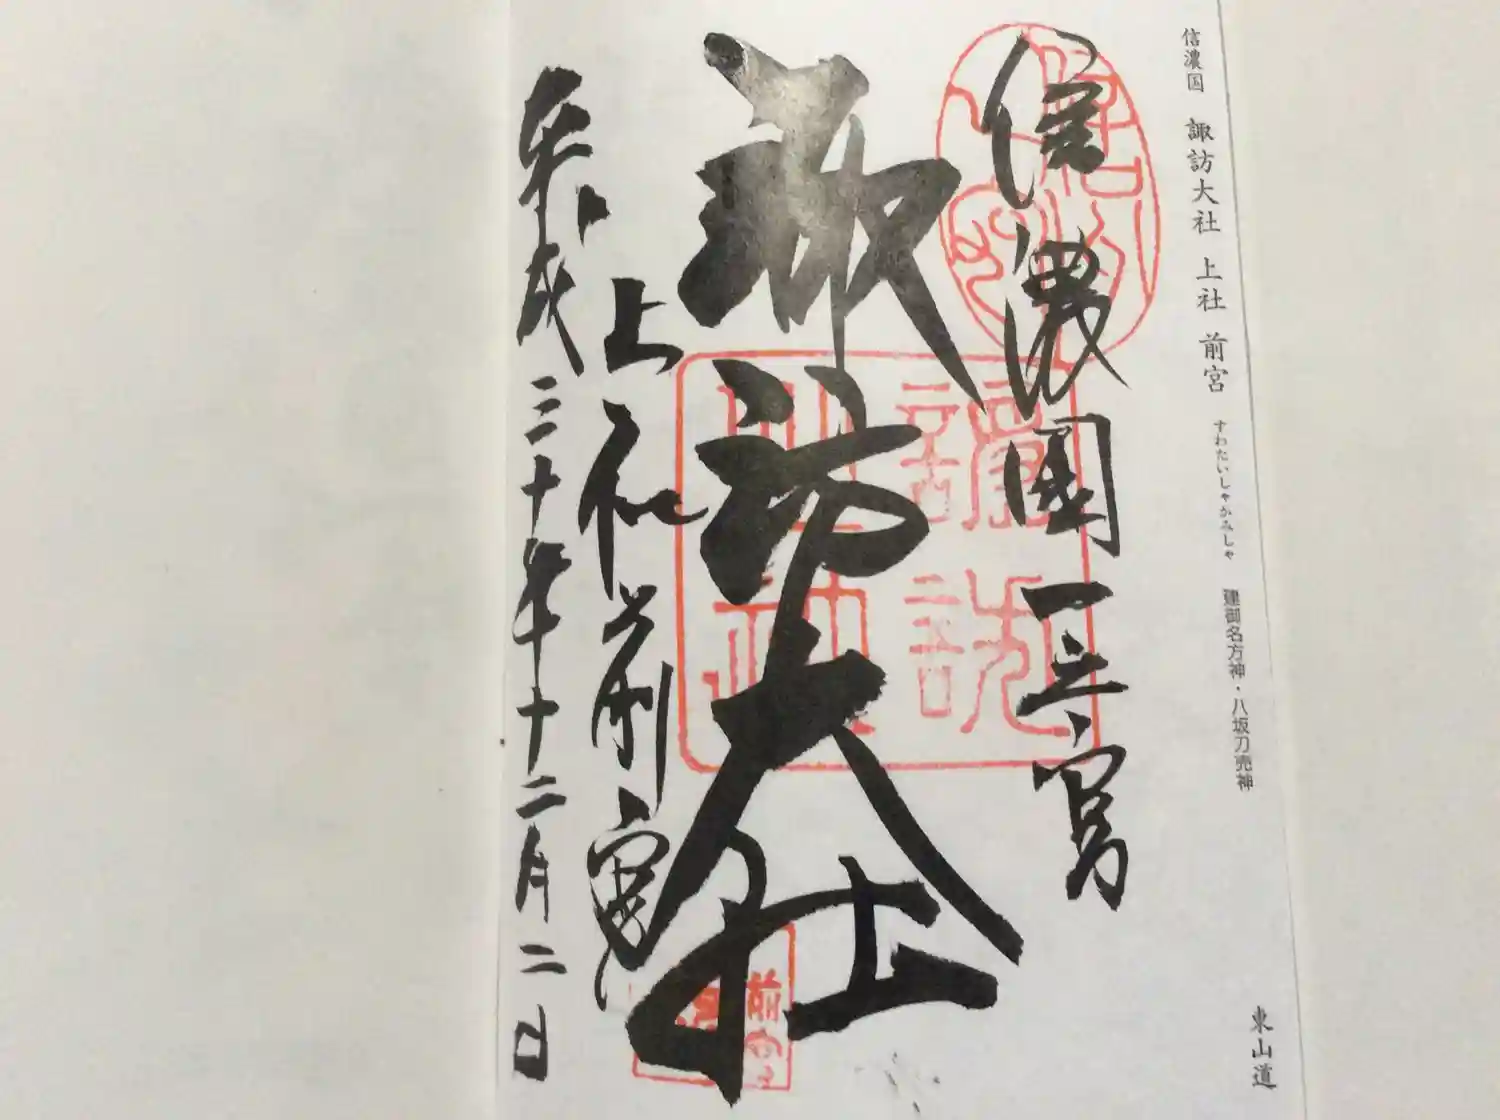 信濃国 諏訪大社 上社 前宮 すわたいしゃかみしゃ 建御名方神・八坂刀売神 東山道
信濃國一之宮
諏訪大社
上社前宮
平成三十年十二月二日